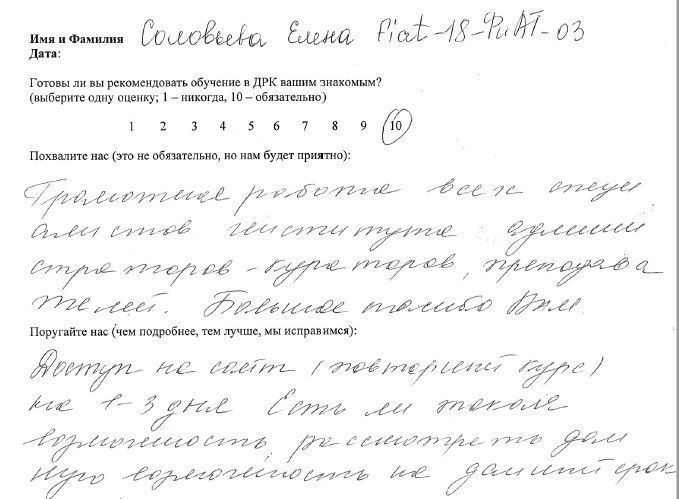 Имя и Фамилия Соловьева Елена Fiat-18-РиАТ-03
Дата:
Готовы ли вы рекомендовать обучение в ДРК вашим знакомым?
(выберите одну оценку; 1 – никогда, 10 – обязательно)
1 2 3 4 5 6 7 8 9 10
Похвалите нас (это не обязательно, но нам будет приятно):
Грамотная работа всех специ
алистов института админи
страторов - кураторов, преподава
телей. Большое спасибо Вам
Поругайте нас (чем подробнее, тем лучше, мы исправимся):
Доступ на сайт (повторный курс)
на 1-3 дня Есть ли такая
возможность рассмотреть дан
ную возможность на данный срок